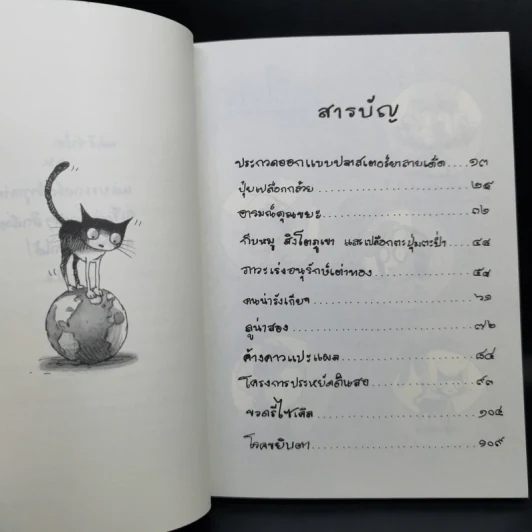 สารบัญ
ประกวดออกแบบปลาสเตอร์ยาสายเด็ด.....๑๓
ปุ๋ยเปลือกกล้วย.....๒๕
อารมณ์คุณขยะ.....๓๒
กีบหมู สิงโตภูเขา และเปลือกตะปุ่มตะป่ำ.....๔๔
ภาวะเร่งอนุรักษ์เต่าทอง.....๕๔
คนน่ารังเกียจ.....๖๑
ดูน่าสอง.....๗๒
ค้างคาวแปะแผล.....๘๔
โครงการประหยัดดินสอ.....๙๓
ขวดรีไซเคิล.....๑๐๔
โลกขยิบตา.....๑๐๙